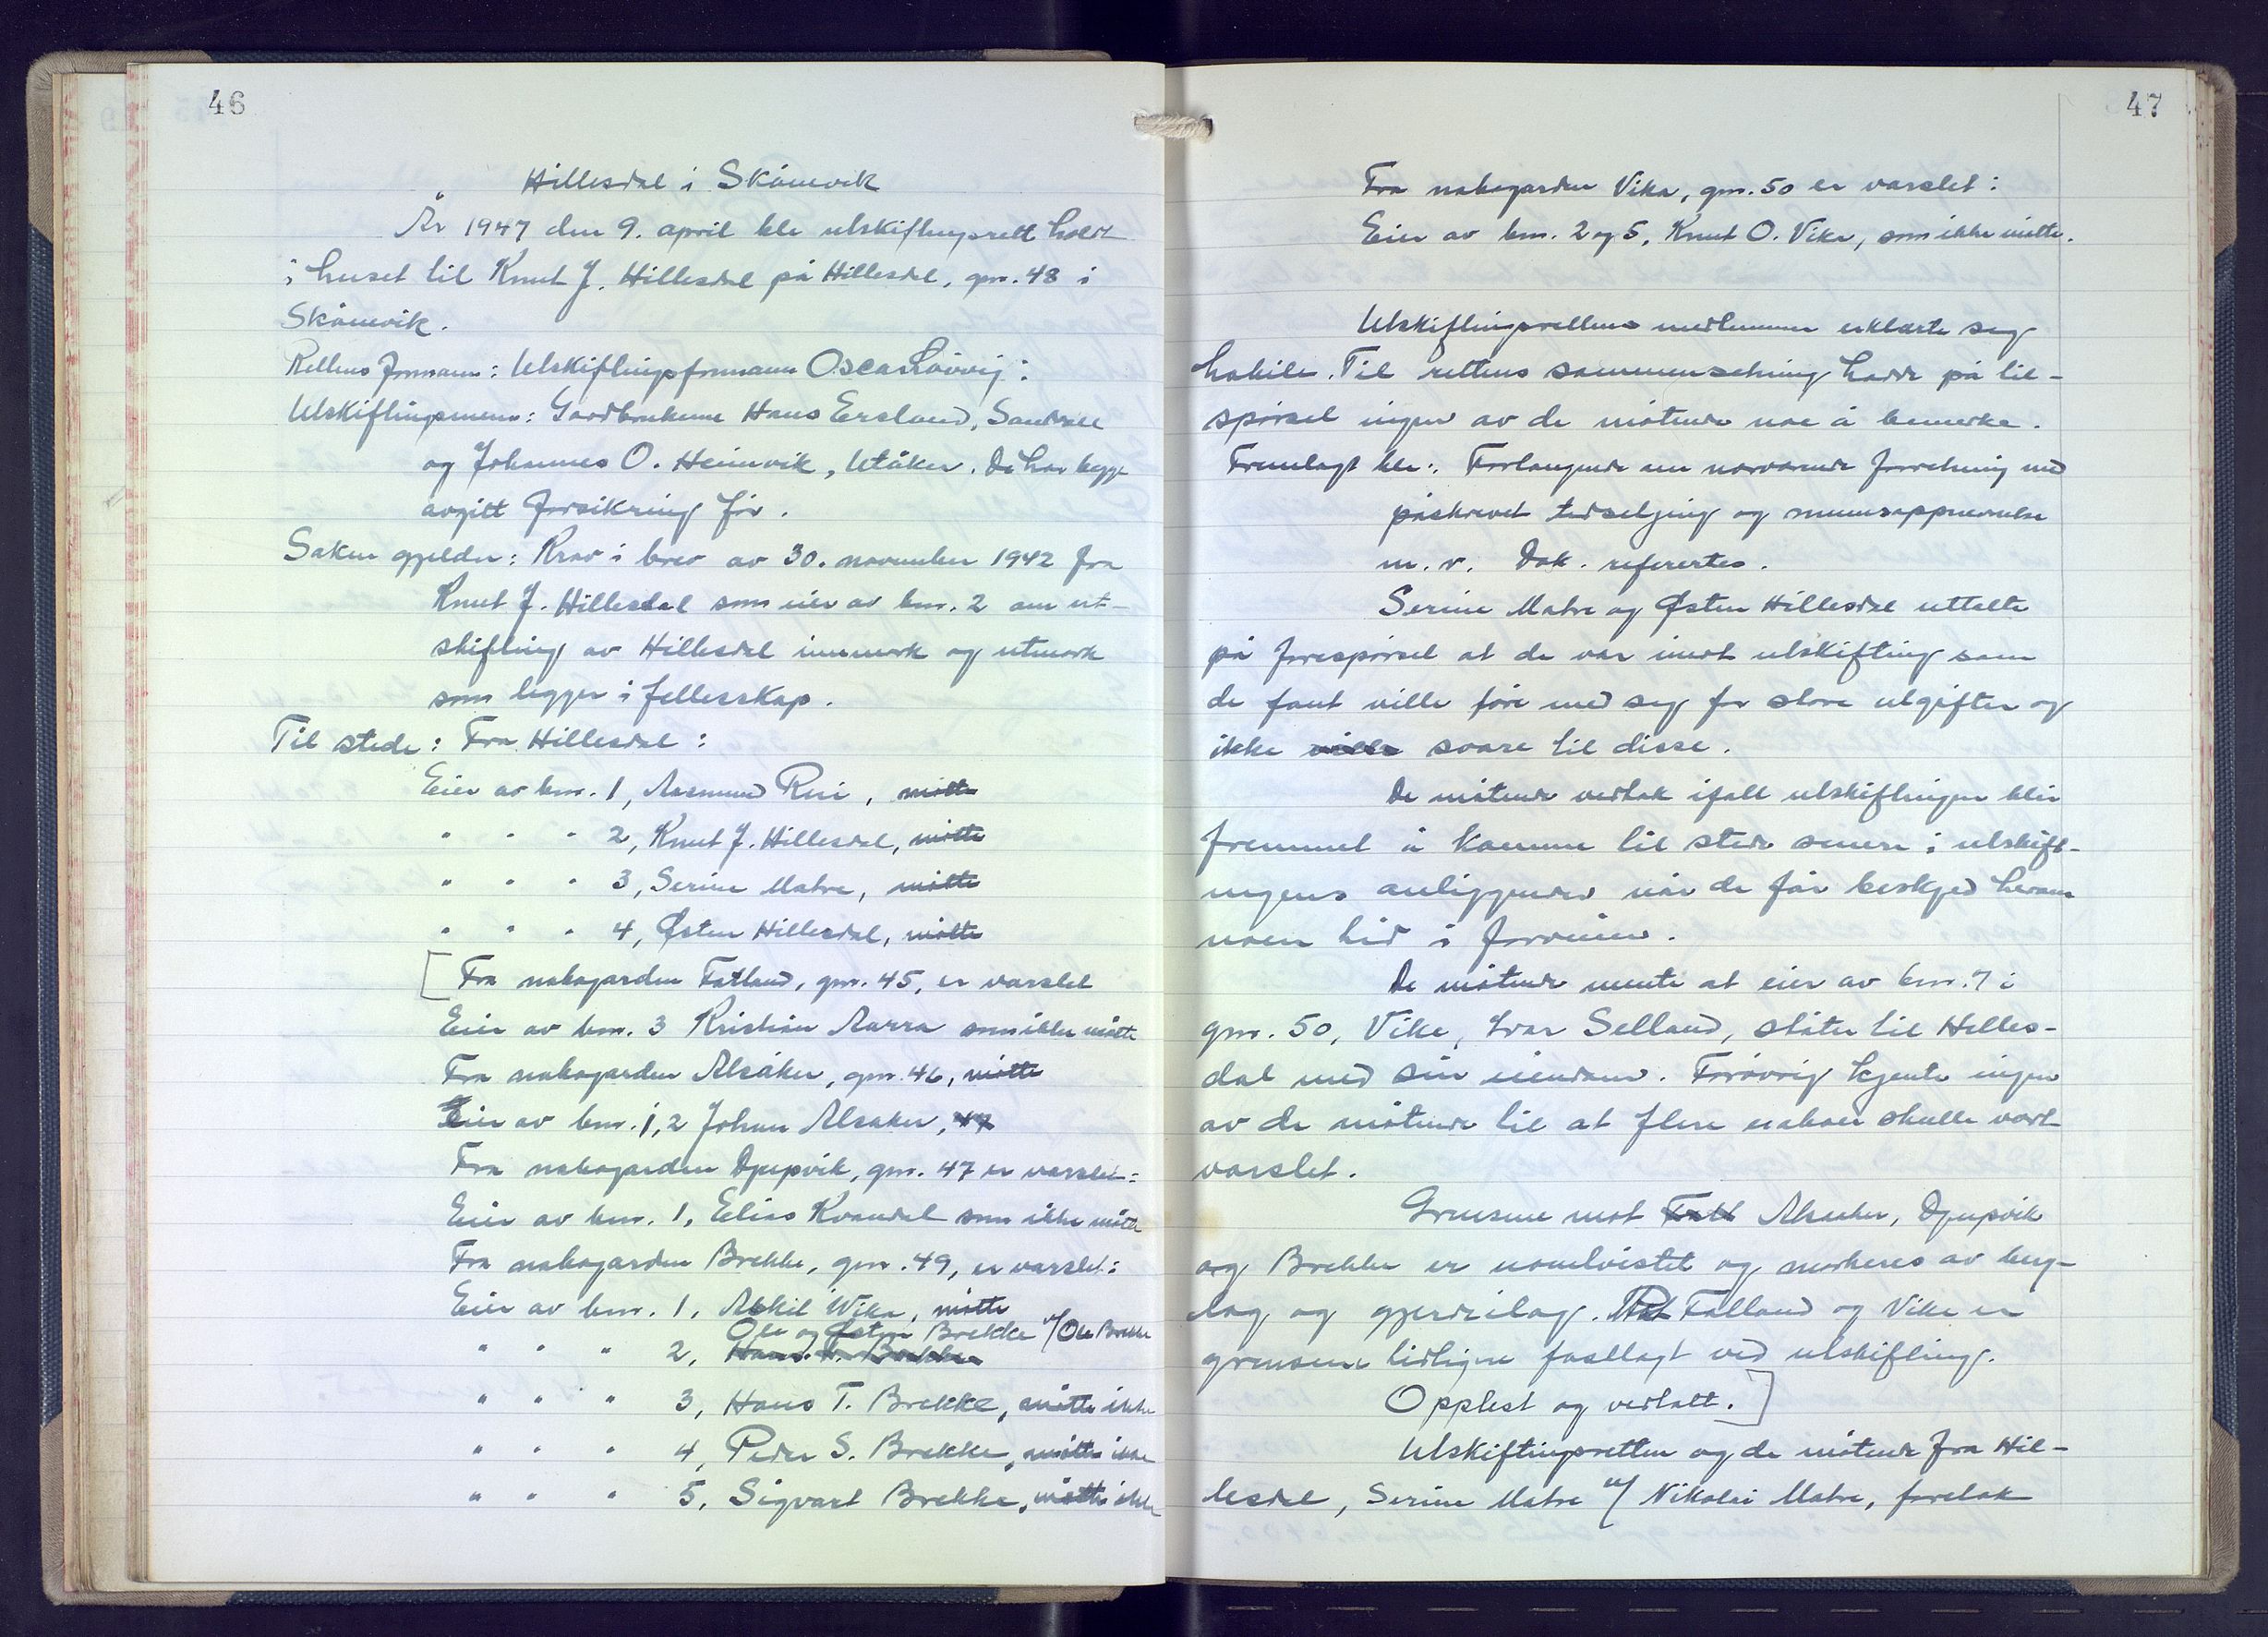 46
Hillesdal i Skånevik
År 1947 den 9. april ble utskiftingsrett holdt
i huset til Knut J. Hillesdal på Hillesdal, gnr. 48 i
Skånevik.
Rettens formann: Utskiftingsformann Oscar Løvvig:
Utskiftingsmenn: Gardbrukerne Hans Ersland, Sandvoll
og Johannes O. Heimvik, Utåker. De har begge
avgitt forsikring før.
Saken gjelder: Krav i brev av 30. november 1942 fra
Knut J. Hillesdal som eier av bnr. 2 om ut-
skifting av Hillesdal innmark og utmark
som ligger i fellesskap.
Til stede: Fra Hillesdal:
Eier av bnr. 1, Rasmund Rei, møtte
" " " 2, Knut J. Hillesdal, møtte
" " " 3, Serine Matre, møtte
" " " 4, Østen Hillesdal, møtte
[Fra nabogarden Fatland, gnr. 45, er varslet
Eier av bnr. 3 Kristian Aarra som ikke møtte
Fra nabogarden Alsåker, gnr. 46, møtte
Eier av bnr. 1, 2 Johan Alsaker, 47
Fra nabogarden Djupvik, gnr. 47 er varslet:
Eier av bnr. 1, Elias Kvandal som ikke møtte
Fra nabogarden Brekke, gnr. 49, er varslet:
Eier av bnr. 1, Askil Wika, møtte
Ole og Østen Brekke v/Ole Brekke
" " " 2, Hans T. Brekke
" " " 3, Hans T. Brekke, møtte ikke
" " " 4, Peder S. Brekke, møtte ikke
" " " 5, Sigvart Brekke, møtte ikke
47
Fra nabogarden Vika, gnr. 50 er varslet:
Eier av bnr. 2 og 5, Knut O. Vika, som ikke møtte.
Utskiftingsrettens medlemmer erklærte seg
habile. Til rettens sammensetning hadde på til-
spørsel ingen av de møtende noe å bemerke.
Fremlagt ble: Forlangende om nærværende forretning med
påskrevet tidsetjing og mennsoppnevnelse
m. v. Dok. referertes.
Serine Matre og Østen Hillesdal uttalte
på forespørsel at de var imot utskifting som
de fant ville føre med seg for store utgifter og
ikke ville svare til disse.
De møtende vedtok ifall utskiftingen blir
fremmet å komme til stede senere i utskift-
ingens anliggender når de får beskjed herom
noen tid i forveien.
De møtende mente at eier av bnr. 7 i
gnr. 50, Vike, Ivar Selland, støter til Hilles-
dal med sin eiendom. Forøvrig kjente ingen
av de møtende til at flere naboer skulle vært
varslet.
Grensene mot Fatl Alsaker, Djupvik
og Brekke er uomtvistet og markeres av berg-
lag og gjerdelag. Mot Fatland og Vike er
grensene tidligere fastlagt ved utskifting.
Opplest og vedtatt.]
Utskiftingsretten og de møtende fra Hil-
lesdal, Serine Matre v/ Nikolai Matre, foretok